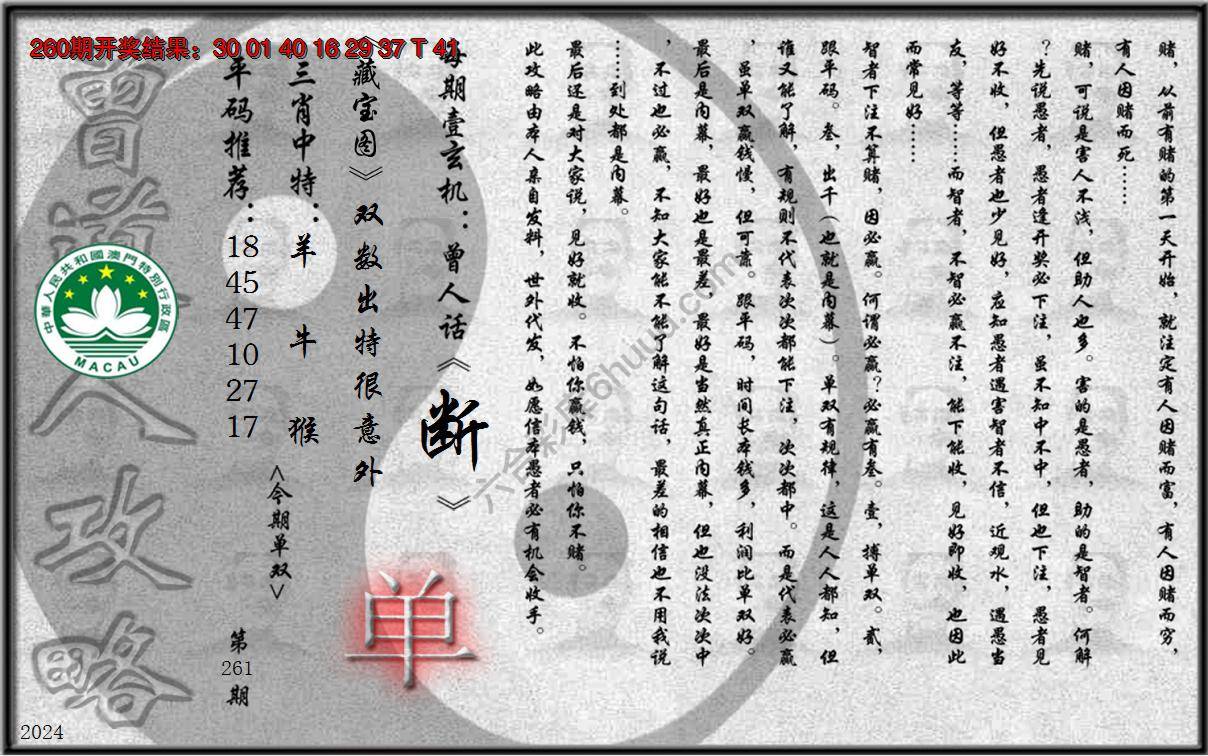 260期开奖结果：30 01 40 16 29 37 T 41
赌，从前有赌的第一天开始，就注定有人因赌而富，有人因赌而穷，
有人因赌而死……
赌，可说是害人不浅，但助人也多。害的是愚者，助的是智者。何解
？先说愚者，愚者逢开奖必下注，虽不知中不中，但也下注，愚者见
好不收，但愚者也少见好，应知愚者遇害智者不信，近观水，遇愚当
友，等等……而智者，不智必赢不注，能下能收，见好即收，也因此
而常见好……
智者下注不算赌，因必赢。何谓必赢？必赢有叁。壹，搏单双。贰，
跟平码。叁，出千（也就是内幕）。单双有规律，这是人人都知，但
谁又能了解，有规则不代表次次都能下注，次次都中。而是代表必赢
，虽单双赢钱慢，但可靠。跟平码，时间长本钱多，利润比单双好。
最后是内幕，最好也是最差，最好是当然真正内幕，但也没法次次中
，不过也必赢，不知大家能不能了解这句话，最差的相信也不用我说
……到处都是内幕。
最后还是对大家说，见好就收。不怕你赢钱，只怕你不赌。
此攻略由本人亲自发料，世外代发，如愿信本愚者必有机会收手。
每期壹玄机：曾人话《断》
《藏宝图》双数出特很意外
三肖中特：羊 牛 猴
<今期单双>
单
平码推荐：
18
45
47
10
27
17
第
261
期
曾道人攻略
中華人民共和國澳門特別行政區
MACAU
六合彩库6huuu.com
2024